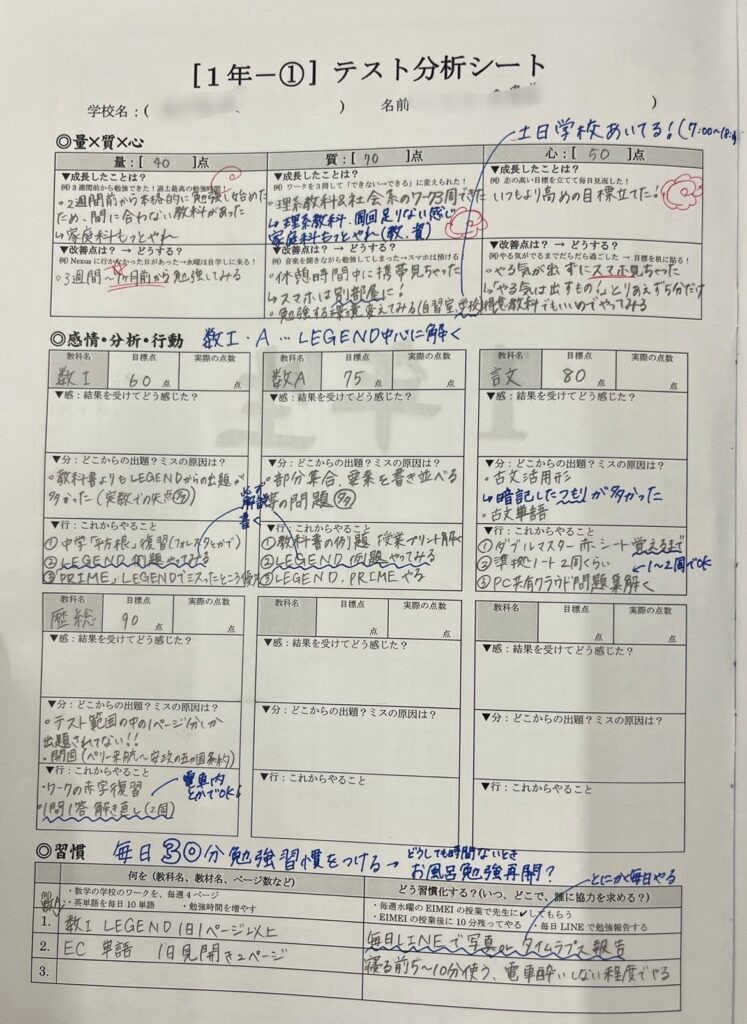 [1年-①] テスト分析シート
学校名：(　　　) 名前 (　　　)
土日学校あいてる！(7:00〜18:
◎量×質×心
量：[ 40 ]点 質：[ 70 ]点 心：[ 50 ]点
▼成長したことは？
例) 3週間前から勉強できた！過去最高の勉強時間！
・2週間前から本格的に勉強し始めた
ため、間に合わない教科があった
・家庭科もっとやれ
▼改善点は？ → どうする？
例) Nexusに行かなかった日があった→水曜は自学しに来る！
・3週間〜1ヶ月前から勉強してみる
▼成長したことは？
例) ワークを3周して「できない→できる」に変えられた！
・理系教科&社会系のワーク3周できた
↳理系教科、周回足りない感じ
家庭科もっとやれ(教、資)
▼改善点は？ → どうする？
例) 音楽を聞きながら勉強してしまった→スマホは預ける
・休憩時間中に携帯見ちゃった
↳スマホは別部屋に！
・勉強する環境変えてみる(自習室、学校)
▼成長したことは？
例) 志の高い目標を立てて毎日見返した！
いつもより高めの目標立てた！
▼改善点は？ → どうする？
例) やる気がでるまでだらだら過ごした → 目標を机に貼る！
・やる気が出ずにスマホ見ちゃった
↳「やる気は出すもの！」とりあえず5分だけ
得意教科でもいいのでやってみる
◎感情・分析・行動 数Ⅰ・A … LEGEND中心に解く
教科名 目標点 実際の点数
数Ⅰ 60点 点
▼感：結果を受けてどう感じた？
▼分：どこからの出題？ミスの原因は？
・教科書よりもLEGENDからの出題が
多かった(実数での失点多)
▼行：これからやること
①中学「平方根」復習(フォレスタとかで)
②LEGEND 例題やってみる
③PRIME、LEGENDでミスったところ復習
必ず
解説
書く
教科名 目標点 実際の点数
数A 75点 点
▼感：結果を受けてどう感じた？
▼分：どこからの出題？ミスの原因は？
・部分集合、要素を書き並べる
等の問題多
▼行：これからやること
①教科書の例題、授業プリント解く
②LEGEND 例題やってみる
③LEGEND、PRIMEやる
教科名 目標点 実際の点数
言文 80点 点
▼感：結果を受けてどう感じた？
▼分：どこからの出題？ミスの原因は？
・古文活用形
↳暗記したつもりが多かった
・古文単語
▼行：これからやること
①ダブルマスター赤シート覚えるまで
②準拠ノート2周くらい
←1〜2周でOK
③PC共有クラウド問題集解く
教科名 目標点 実際の点数
歴総 90点 点
▼感：結果を受けてどう感じた？
▼分：どこからの出題？ミスの原因は？
・テスト範囲の中の1ページ分しか
出題されてない!!
・開国(ペリー来航〜安政の五カ国条約)
▼行：これからやること
・ワークの赤字復習
・1問1答解き直し(2周)
電車内
とかでOK！
教科名 目標点 実際の点数
点 点
▼感：結果を受けてどう感じた？
▼分：どこからの出題？ミスの原因は？
▼行：これからやること
教科名 目標点 実際の点数
点 点
▼感：結果を受けてどう感じた？
▼分：どこからの出題？ミスの原因は？
▼行：これからやること
◎習慣 毎日30分勉強習慣をつける→
どうしても時間ないとき
お風呂勉強再開？
→とにかく毎日やる
何を (教科名、教材名、ページ数など) どう習慣化する？(いつ、どこで、誰に協力を求める？)
例) ・数学の学校のワークを、毎週4ページ
・英単語を毎日10単語 ・勉強時間を増やす
・毎週水曜のEIMEIの授業で先生に✓してもらう
・EIMEIの授業後に10分残ってやる ・毎日LINEで勉強報告する
1. 数Ⅰ LEGEND 1日1ページ以上 毎日LINEで写真orタイムラプス報告
2. EC 単語 1日見開き2ページ 寝る前5〜10分使う、電車酔いしない程度でやる
3.